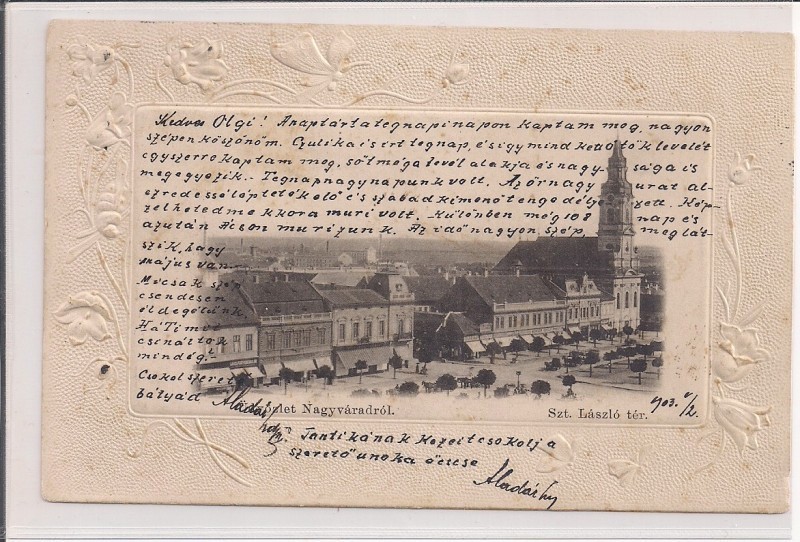 Kedves Olgi! A naptárt a tegnapi napon kaptam meg, nagyon
szépen köszönöm. Czulika is írt tegnap, és így mind kettőtök levelét
egyszerre kaptam meg, sőt még a levél alakja és nagysága is
megegyezik. - Tegnap nagy napunk volt. Az őrnagy urat al-
ezredessé léptették elő és szabad kimenőt engedélyezett. Kép-
zelheted mekkora muri volt. Különben még 108 nap és
azután Ácson murizunk. Az idő nagyon szép, meglát-
szik, hogy
május van.
Mi csak szép
csendesen
éldegélünk.
Hát Ti mit
csináltok
mindég?
Csókol szerető
bátyád Aladár
Üdvözlet Nagyváradról.
Szt. László tér.
903. V/2.
Tantikának kezeit csókolja
szerető unoka öccse
Aladár